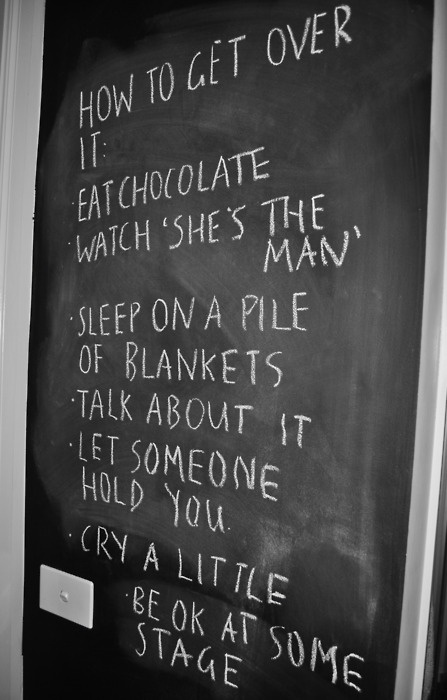 HOW TO GET OVER
IT:
· EAT CHOCOLATE
· WATCH 'SHE'S THE
MAN'
· SLEEP ON A PILE
OF BLANKETS
· TALK ABOUT IT
· LET SOMEONE
HOLD YOU.
· CRY A LITTLE
· BE OK AT SOME
STAGE